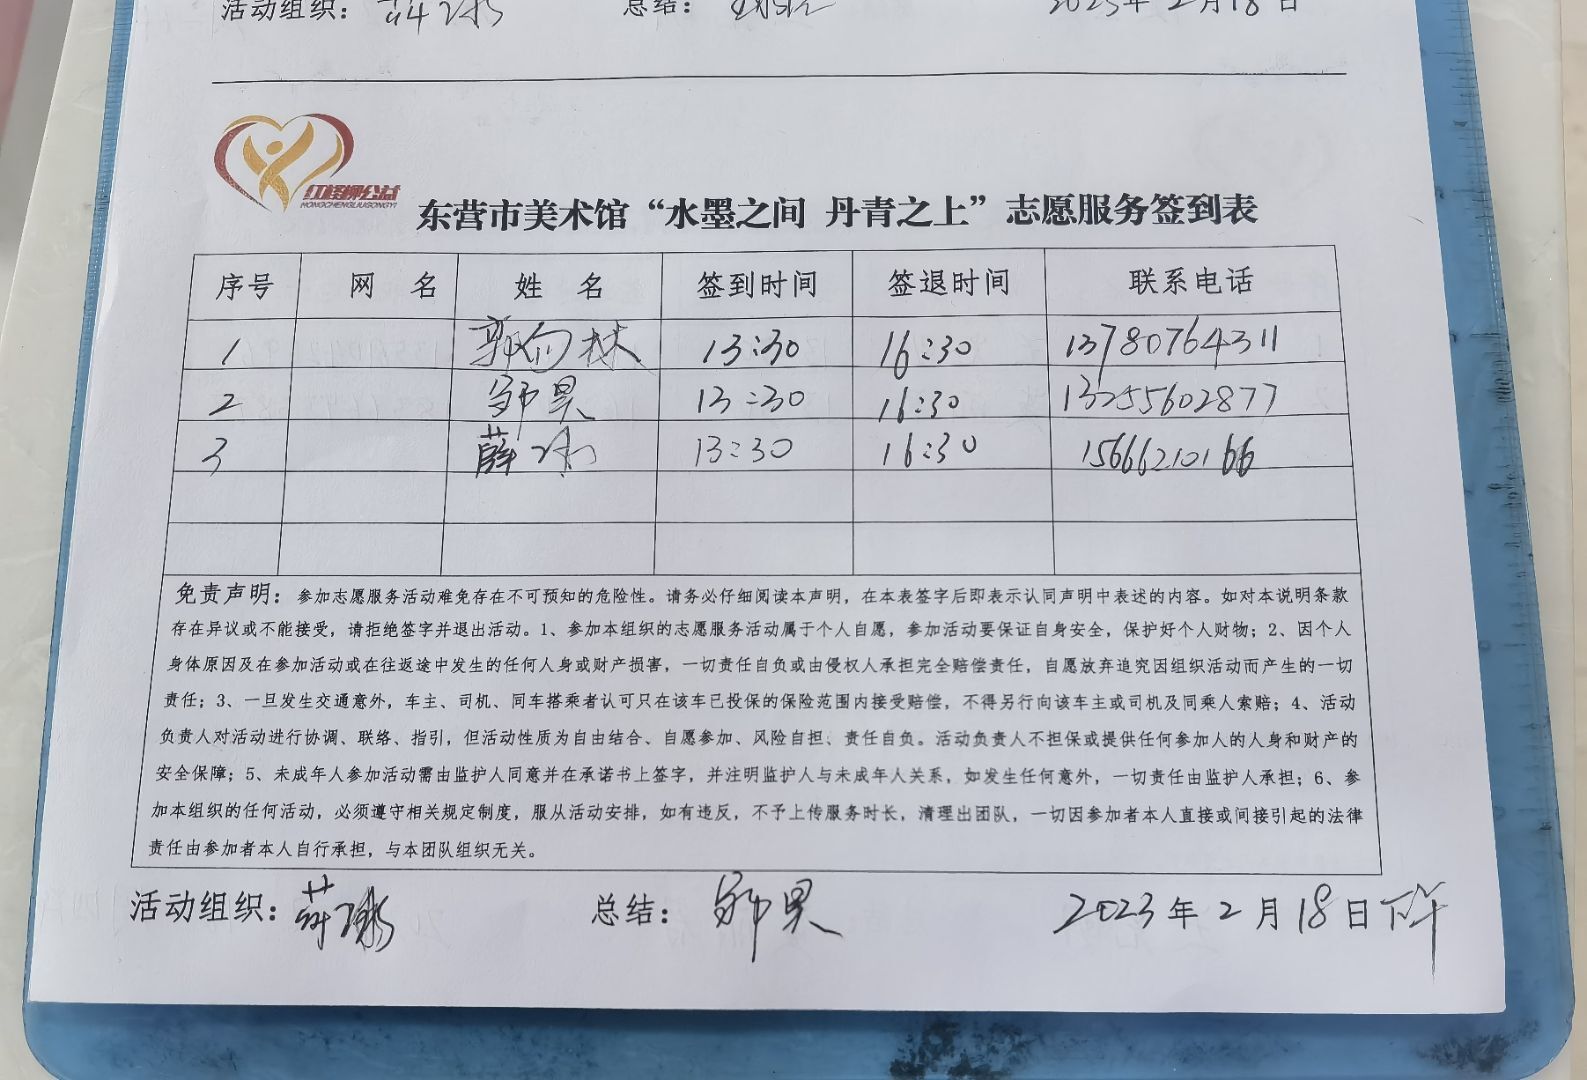 活动组织: 薛冰 总结: 2023年2月18日
红柽柳公益
HONGCHENGLIUGONGYI
东营市美术馆“水墨之间 丹青之上”志愿服务签到表
序号 网 名 姓 名 签到时间 签退时间 联系电话
1 郭向林 13:30 16:30 13780764311
2 邹昊 13:30 16:30 13255602877
3 薛冰 13:30 16:30 15666210166
免责声明: 参加志愿服务活动难免存在不可预知的危险性。请务必仔细阅读本声明, 在本表签字后即表示认同声明中表述的内容。如对本说明条款
存在异议或不能接受, 请拒绝签字并退出活动。1、参加本组织的志愿服务活动属于个人自愿, 参加活动要保证自身安全, 保护好个人财物; 2、因个人
身体原因及在参加活动或在往返途中发生的任何人身或财产损害, 一切责任自负或由侵权人承担完全赔偿责任, 自愿放弃追究因组织活动而产生的一切
责任; 3、一旦发生交通意外, 车主、司机、同车搭乘者认可只在该车已投保的保险范围内接受赔偿, 不得另行向该车主或司机及同乘人索赔; 4、活动
负责人对活动进行协调、联络、指引, 但活动性质为自由结合、自愿参加、风险自担、责任自负。活动负责人不担保或提供任何参加人的人身和财产的
安全保障; 5、未成年人参加活动需由监护人同意并在承诺书上签字, 并注明监护人与未成年人关系, 如发生任何意外, 一切责任由监护人承担; 6、参
加本组织的任何活动, 必须遵守相关规定制度, 服从活动安排, 如有违反, 不予上传服务时长, 清理出团队, 一切因参加者本人直接或间接引起的法律
责任由参加者本人自行承担, 与本团队组织无关。
活动组织: 薛冰 总结: 邹昊 2023年2月18日下午